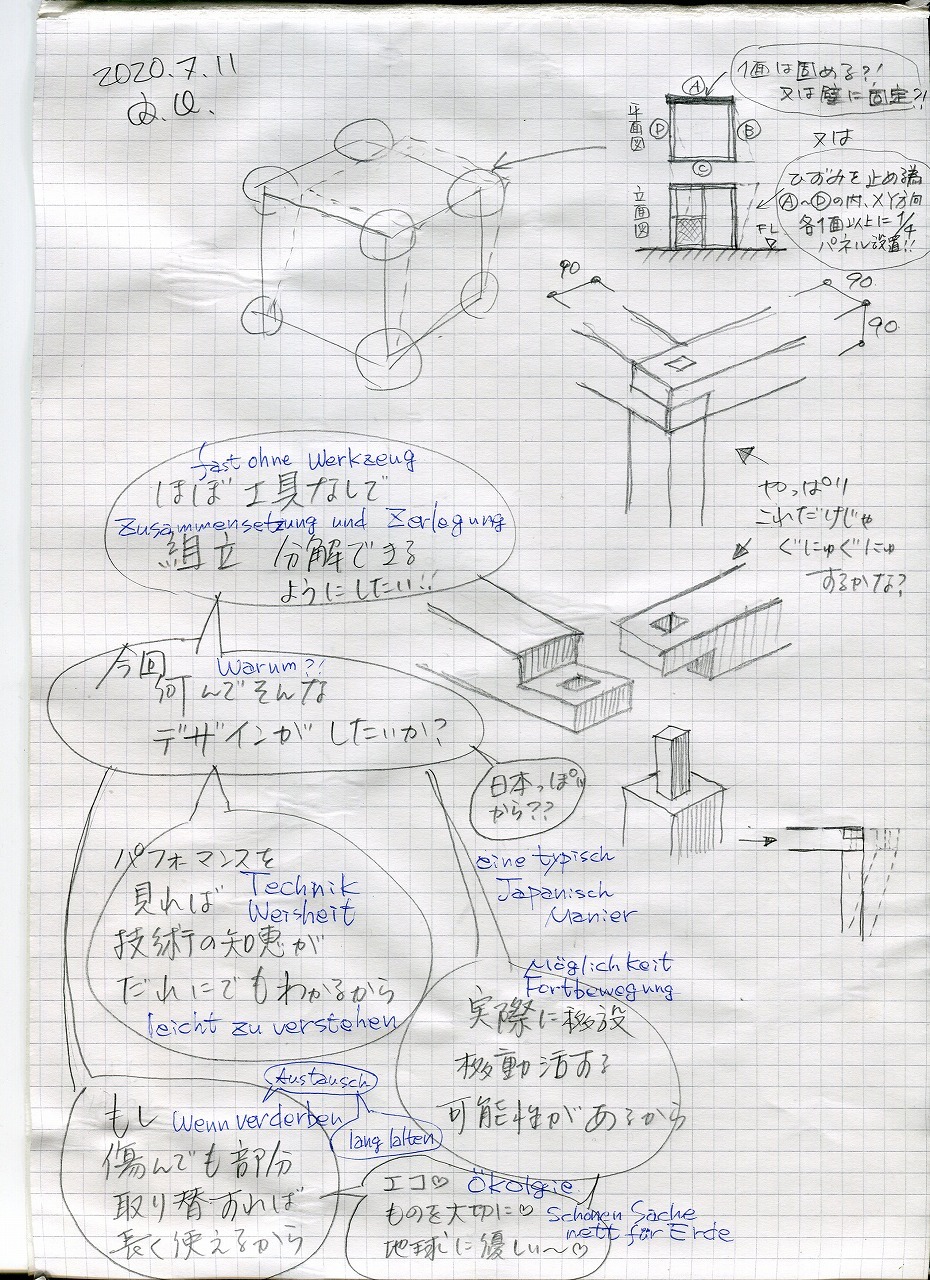 2020.7.11
1面は固める?!
又は壁に固定?!
平面図
A
B
C
D
又は
ひずみを止める為
A〜Dの内、XY方向
各1面以上に1/4
パネル設置!!
立面図
FL
90
90
90
やっぱり
これだけじゃ
ぐにゅぐにゅ
するかな?
fast ohne Werkzeug
ほぼ工具なしで
Zusammensetzung und Zerlegung
組立 分解できる
ようにしたい!!
今回 Warum?!
何んでそんな
デザインがしたいか?
日本っぽい
から??
eine typisch
Japanisch
Manier
パフォーマンスを
見れば Technik
Weisheit
技術の知恵が
だれにでもわかるから
leicht zu verstehen
Möglichkeit
Fortbewegung
実際に移設
移動活する
可能性があるから
Austausch
もし Wenn verderben
lang lalten
傷んでも部分
取り替すれば
長く使えるから
エコ♡ Ökolgie
ものを大切に♡ Schonen Sache
nett für Erde
地球に優しい〜♡